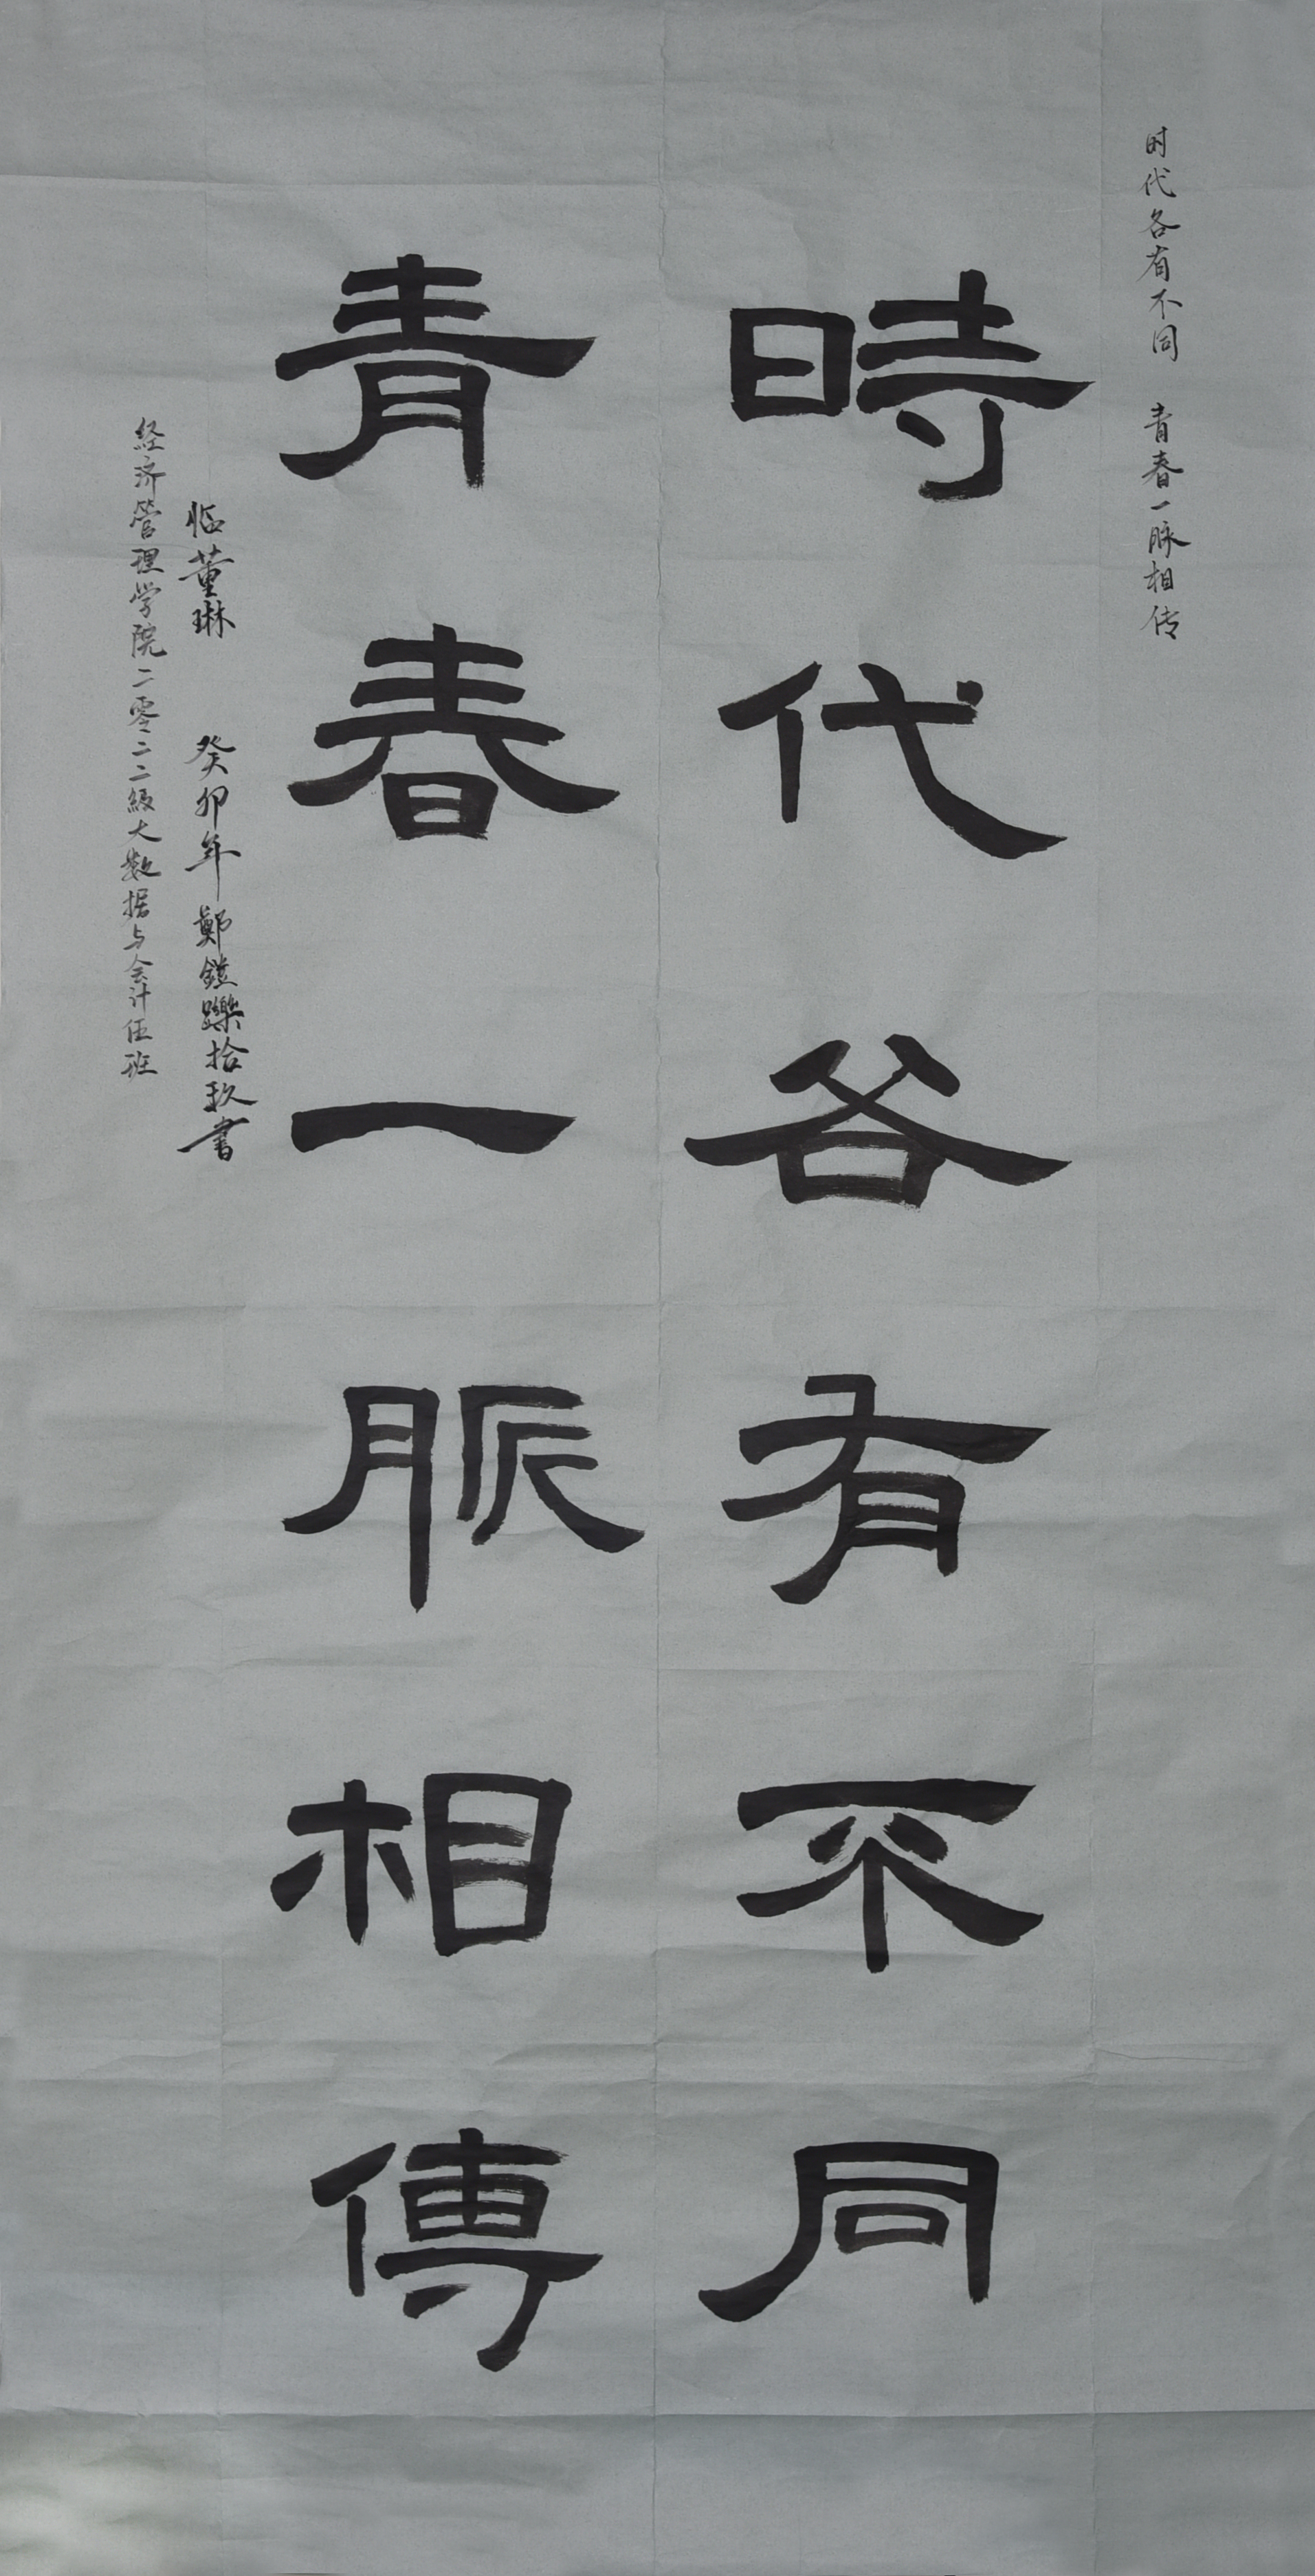 时代各有不同 青春一脉相传
時代各有不同
青春一脈相傳
临董琳 癸卯年 鄭鏜躒拾玖書
经济管理学院二零二二级大数据与会计伍班